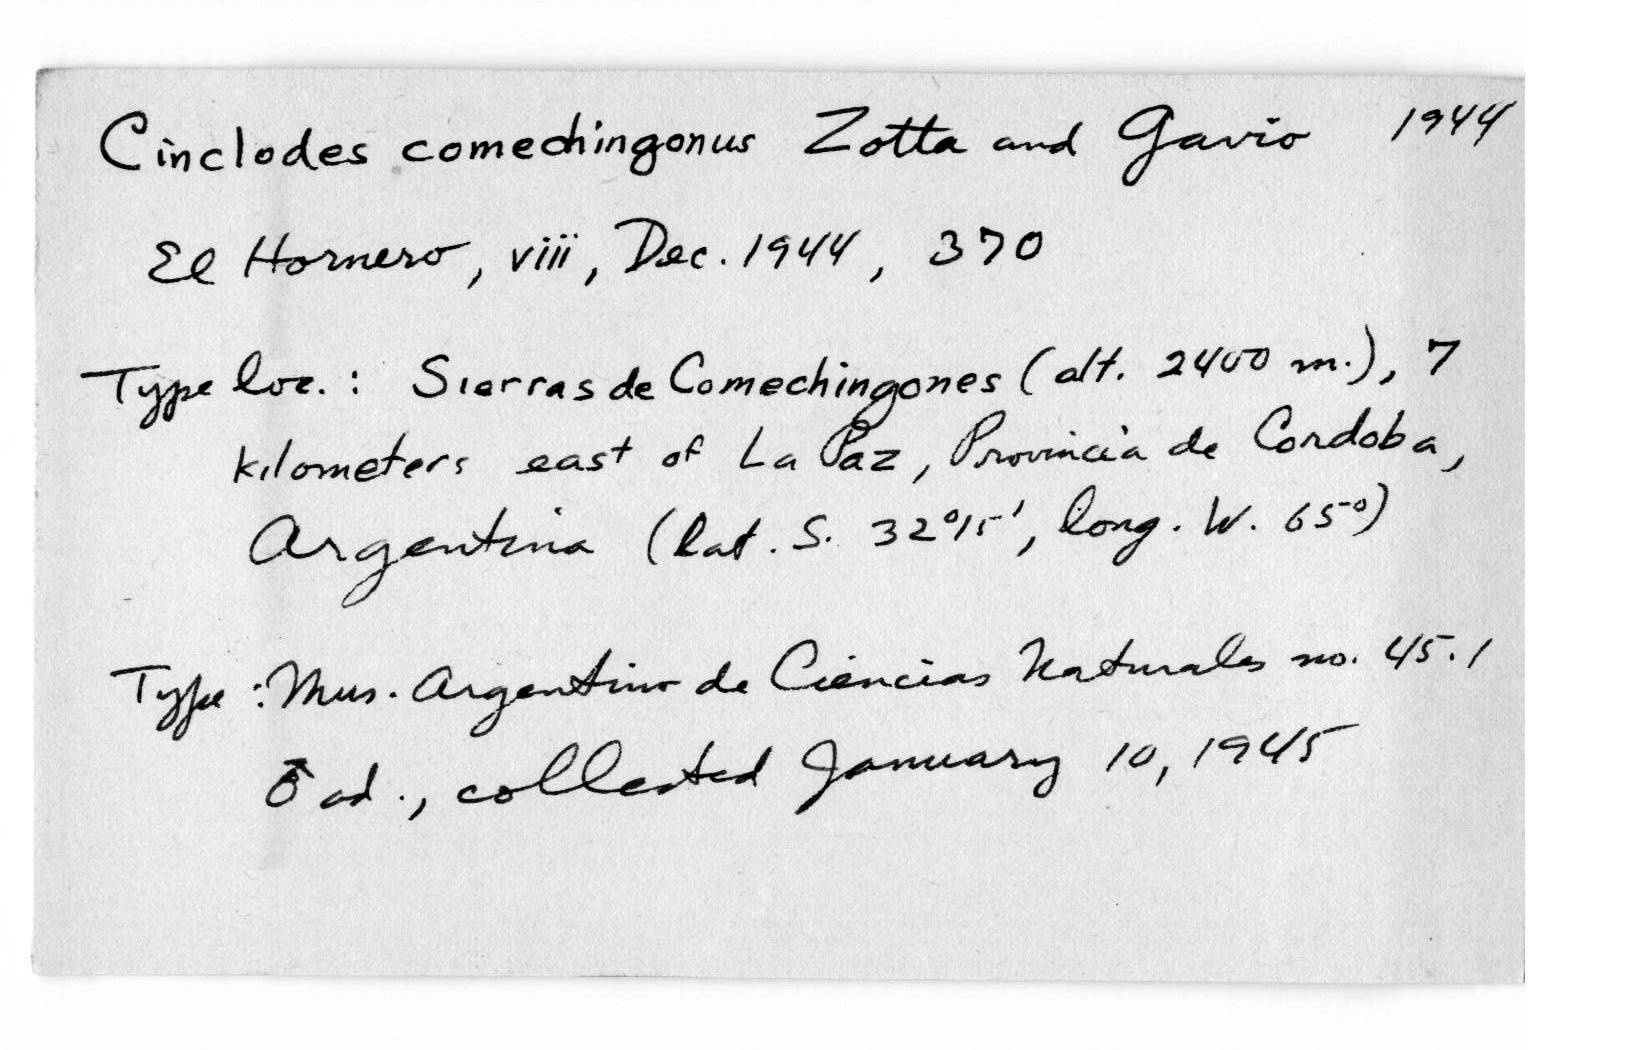 Cinclodes comechingonus Zotta and Gavio 1944
El Hornero, viii, Dec. 1944, 370
Type loc.: Sierras de Comechingones (alt. 2400 m.), 7
kilometers east of La Paz, Provincia de Cordoba,
Argentina (lat. S. 32°15', long. W. 65°)
Type: Mus. Argentino de Ciencias Naturales no. 45.1
♂ ad., collected January 10, 1945